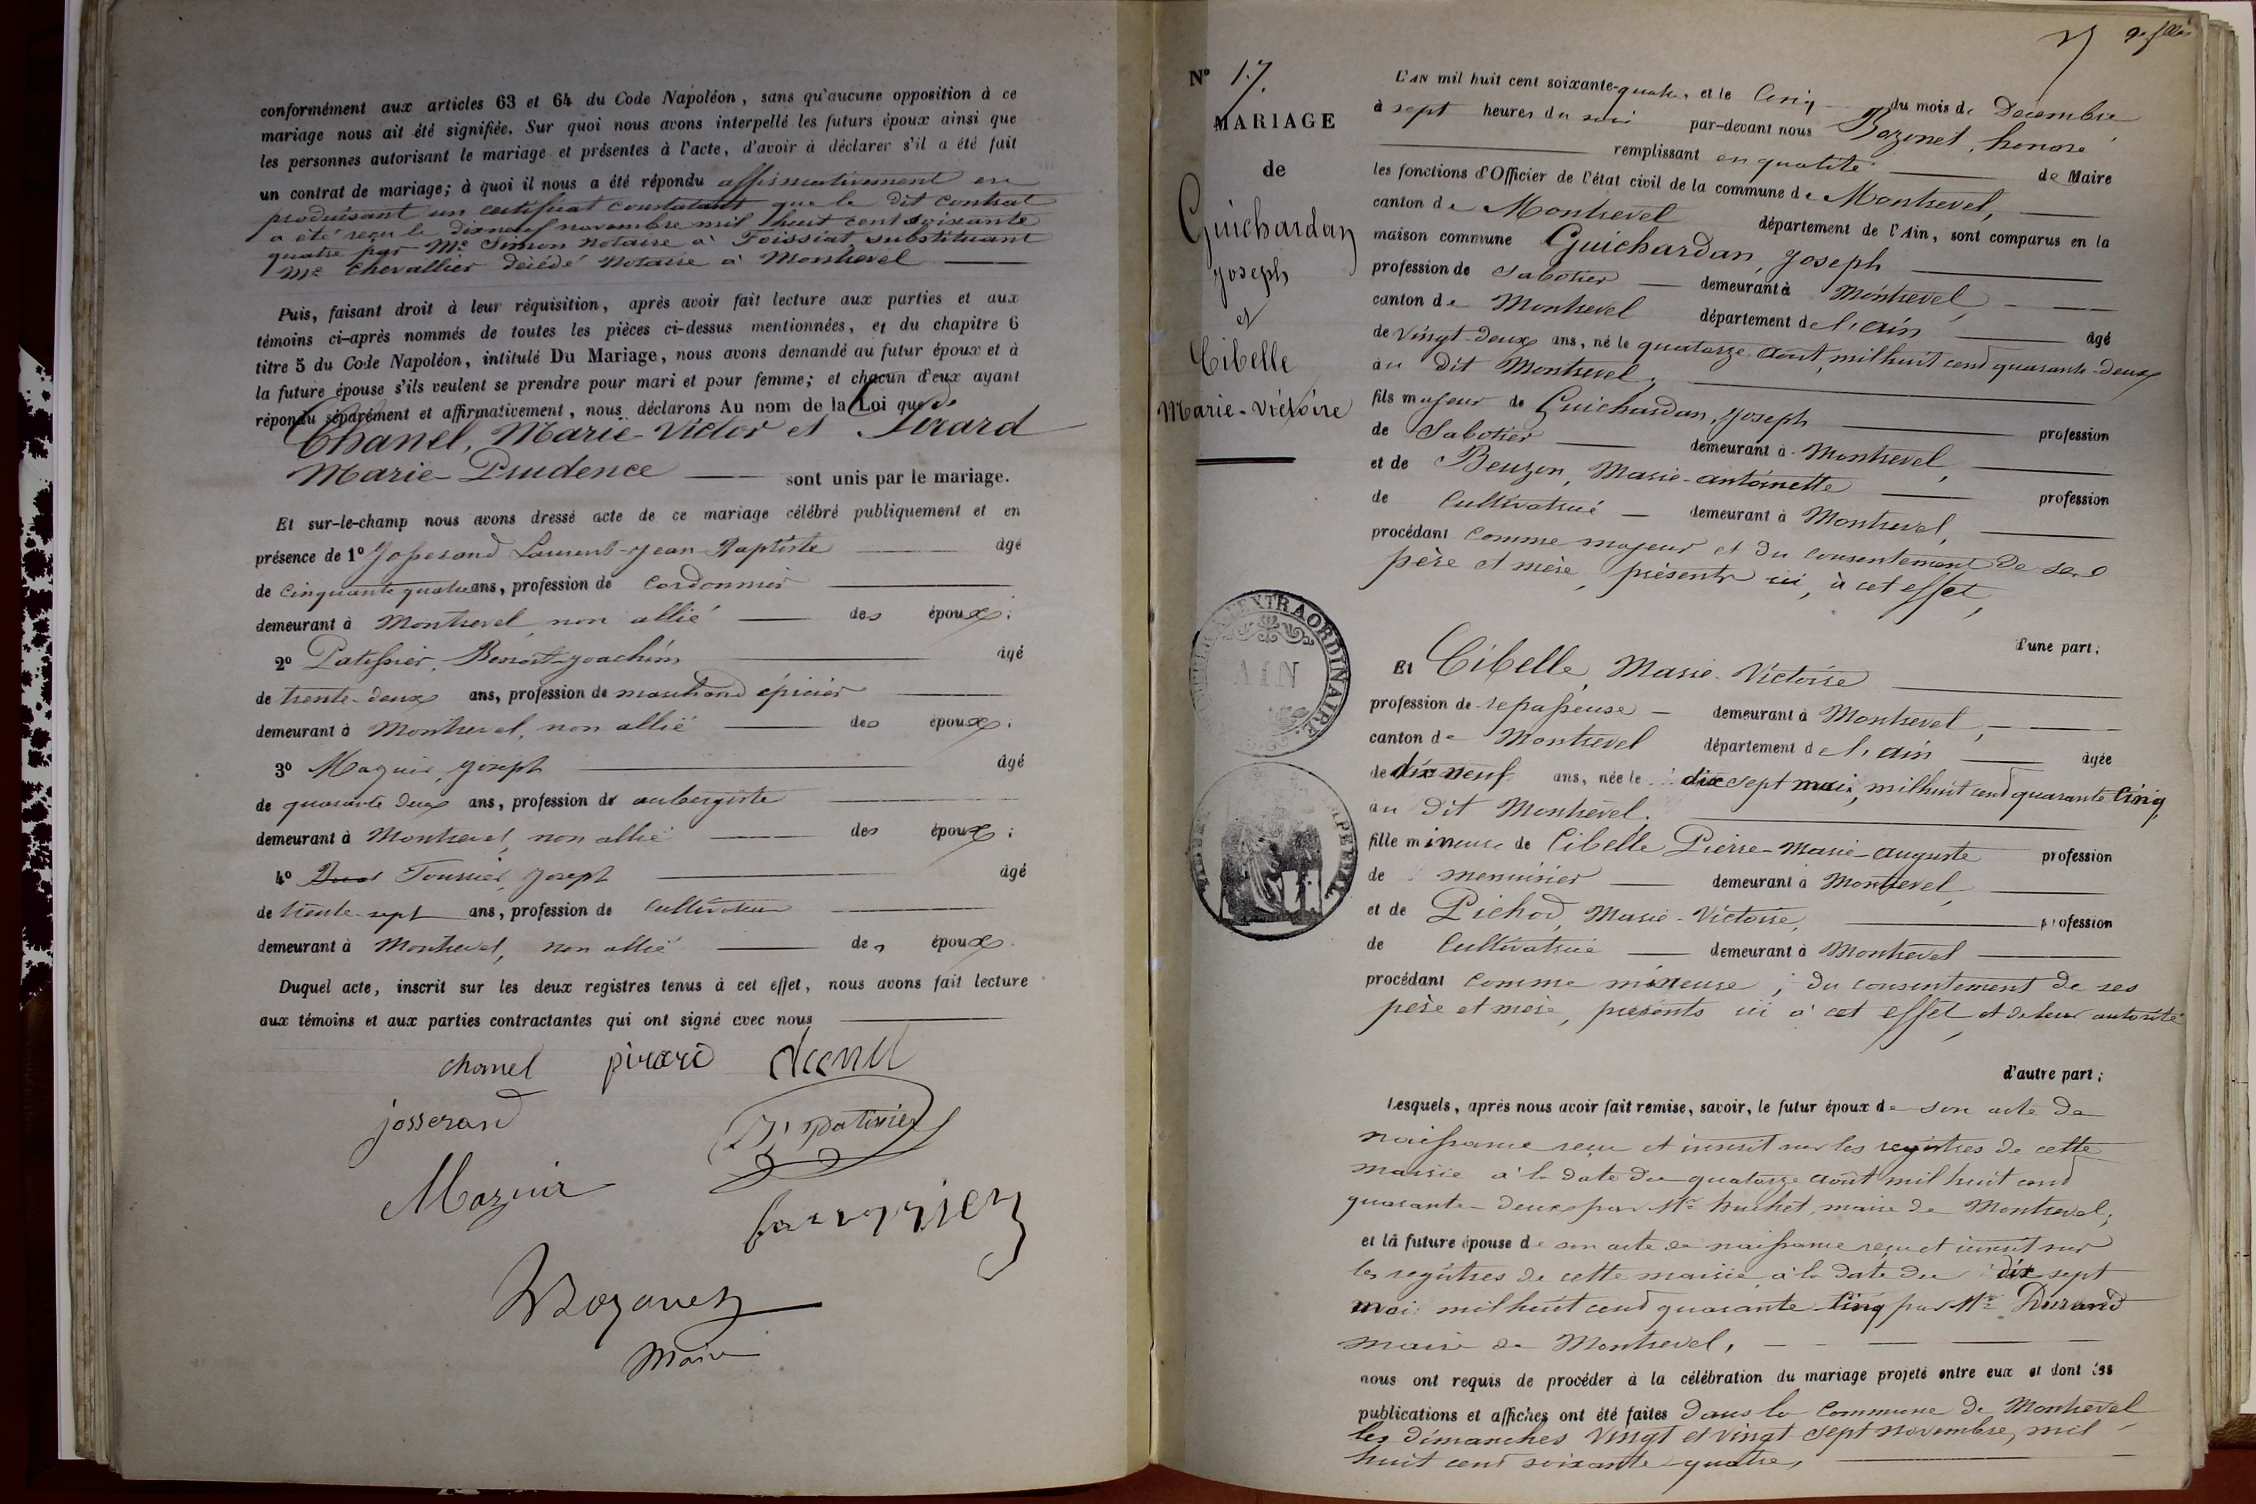 conformément aux articles 63 et 64 du Code Napoléon, sans qu'aucune opposition à ce
mariage nous ait été signifiée. Sur quoi nous avons interpellé les futurs époux ainsi que
les personnes autorisant le mariage et présentes à l'acte, d'avoir à déclarer s'il a été fait
un contrat de mariage; à quoi il nous a été répondu affirmativement en
produisant un certificat constatant que le dit contrat
a été reçu le dixneuf novembre mil huit cent soixante
quatre par Me Simon notaire à Foissiat, substituant
Me Chevallier décédé notaire à Montrevel
Puis, faisant droit à leur réquisition, après avoir fait lecture aux parties et aux
témoins ci-après nommés de toutes les pièces ci-dessus mentionnées, et du chapitre 6
titre 5 du Code Napoléon, intitulé Du Mariage, nous avons demandé au futur époux et à
la future épouse s'ils veulent se prendre pour mari et pour femme; et chacun d'eux ayant
répondu séparément et affirmativement, nous déclarons Au nom de la Loi que
Chanel, Marie-Victor et Pirard
Marie-Prudence sont unis par le mariage.
Et sur-le-champ nous avons dressé acte de ce mariage célébré publiquement et en
présence de 1º Josserand Laurent-Jean-Baptiste âgé
de cinquante quatre ans, profession de cordonnier
demeurant à Montrevel, non allié des époux;
2º Patissier, Benoît-Joachim âgé
de trente-deux ans, profession de marchand épicier
demeurant à Montrevel, non allié des époux;
3º Maguir, Joseph âgé
de quarante deux ans, profession de aubergiste
demeurant à Montrevel, non allié des époux;
4º Fournier, Joseph âgé
de trente-sept ans, profession de cultivateur
demeurant à Montrevel, non allié des époux.
Duquel acte, inscrit sur les deux registres tenus à cet effet, nous avons fait lecture
aux témoins et aux parties contractantes qui ont signé avec nous
chanel pirard
josserand patissier
Bozonet
Maire
Nº 17.
MARIAGE
de
Guichardan
Joseph
et
Cibelle
Marie-Victoire
L'AN mil huit cent soixante-quatre, et le cinq du mois de Décembre
à sept heures du soir par-devant nous Bozonet, honoré
remplissant en qualité de Maire
les fonctions d'Officier de l'état civil de la commune de Montrevel,
canton de Montrevel département de l'Ain, sont comparus en la
maison commune Guichardan, Joseph
profession de sabotier demeurant à Montrevel,
canton de Montrevel département de l'ain âgé
de vingt-deux ans, né le quatorze août, mil huit cent quarante-deux
au dit Montrevel,
fils majeur de Guichardan, Joseph profession
de Sabotier demeurant à Montrevel,
et de Beuzon, Marie-antoinette profession
de cultivatrice demeurant à Montrevel,
procédant comme majeur et du consentement de ses
père et mère, présents ici, à cet effet,
d'une part;
Et Cibelle, Marie-Victoire
profession de repasseuse demeurant à Montrevel,
canton de Montrevel département de l'ain âgée
de dix neuf ans, née le dix sept mai, mil huit cent quarante cinq,
au dit Montrevel.
fille mineure de Cibelle Pierre-Marie-auguste profession
de menuisier demeurant à Montrevel,
et de Pichod, Marie-Victoire, profession
de cultivatrice demeurant à Montrevel
procédant comme mineure, du consentement de ses
père et mère, présents ici à cet effet, et de leur autorité
d'autre part;
Lesquels, après nous avoir fait remise, savoir, le futur époux de son acte de
naissance reçu et inscrit sur les registres de cette
mairie à la date du quatorze août mil huit cent
quarante-deux par Mr huchet, maire de Montrevel;
et la future épouse de son acte de naissance reçu et inscrit sur
les registres de cette mairie à la date du dix sept
mai mil huit cent quarante cinq par Mr Durand
maire de Montrevel,
nous ont requis de procéder à la célébration du mariage projeté entre eux et dont les
publications et affiches ont été faites dans la commune de Montrevel
les dimanches vingt et vingt sept novembre, mil
huit cent soixante-quatre,
EXTRAORDINAIRE
AIN